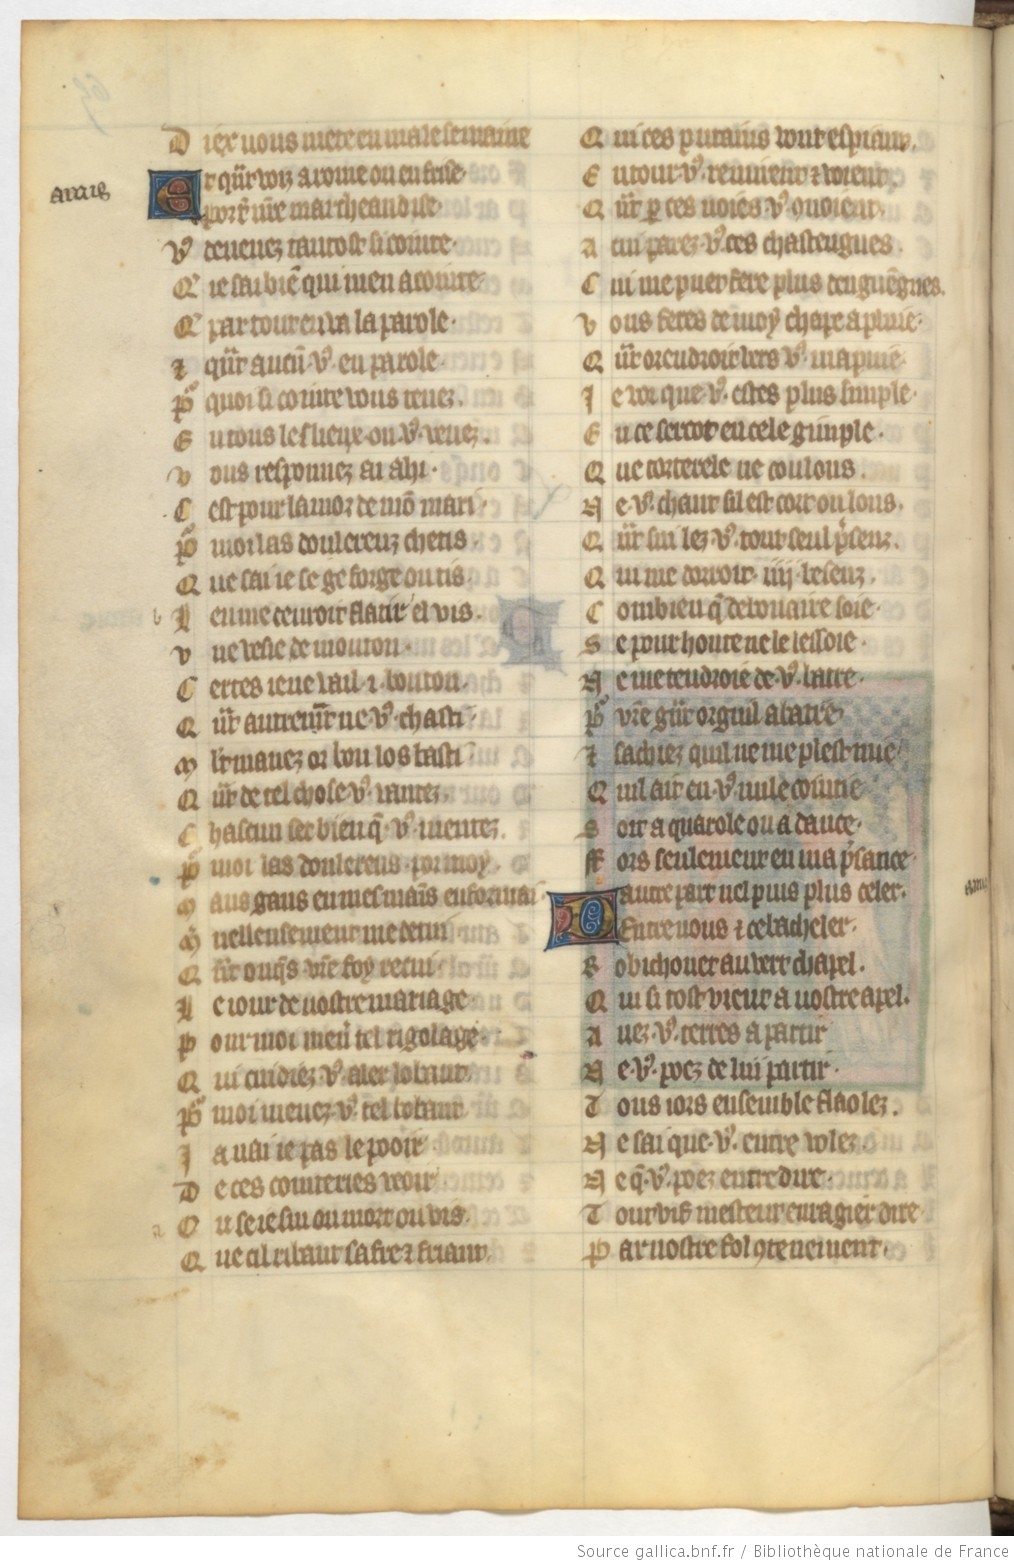 D iex vous mete en male semaine
amie
E t qñt voiz a rome ou en frise
Porter nr̃e marcheandise
V' devenez tantost si cointe
Q' ie sai biẽ qui men acointe
Q' par tout en va la parole
⁊ qñt aucũ v9 en parole
P9 quoi si cointe vous tenez
E n tous les lieux ou v9 venez
V ous responnez ai ahi
C est pour lamor de mõ mari
P9 moi las doulereuz chetis
Q ue sai ie se ge forge ou tis
b L en me devroit flatir el vis
V ne vesie de mouton
C ertes ie ne vail .i. bouton
Q ñt autremt̃ ne v9 chasti
M lt mavez or bon los basti
Q ñt de tel chose v9 vantez
C hascun set bien q̃ v9 mentez
P9 moi las doulereus por moy
M aus gans en mes mains enformai
M vellensement me decui
Q ñt onq̃s vr̃e foy recui
L e iour de nostre mariage
P our moi menez tel rigolage
Q ui cuidiez v9 aler lobant
P9 moi menez v9 tel bobant
J a nai ie pas le pooir
D e ces cointeries veoir
a O u se ie sui ou mort ou vis
Q ue cil ribaut safre ⁊ friant
Q ui ces putains vont espiant
E ntour v9 remirent ⁊ voient
Q ñt p ces voies v9 quoient
A cui parez v9 ces chastengues
C ui me puet fere plus dengũengnes
V ous fetes de moy chape a pluie
Q ñt orendroit lers v9 mapuie
J e voi que v9 estes plus simple
E n ce sercot en cele guimple
Q ue torterele ne coulons
N e v9 chaut sil est cort ou lons
Q ñt sui lez v9 tout seul psenz
Q ui me dorroit .iiij. besenz
C ombien q̃ debonaire soie
S e pour honte ne le lessoie
N e me tendroie de v9 batre
P9 vr̃e gñt orguil abatre
⁊ sachiez quil ne me plest mie
Q uil ait en v9 nule cointie
S oit a quarole ou a dance
ff ors seulement en ma psance
D autre part nel puis plus celer
Entre vous ⁊ ce bacheler
R obichonet au vert chapel
Q ui si tost vient a vostre apel
A vez v9 terres a partir
N e v9 poez de lui partir
T ous iors ensemble flaolez
N e sai que v9 entre volez
N e q̃ v9 poez entredire
T out vif mesteut enragier dire
P ar vostre fol 9tenement
Source gallica.bnf.fr / Bibliothèque nationale de France